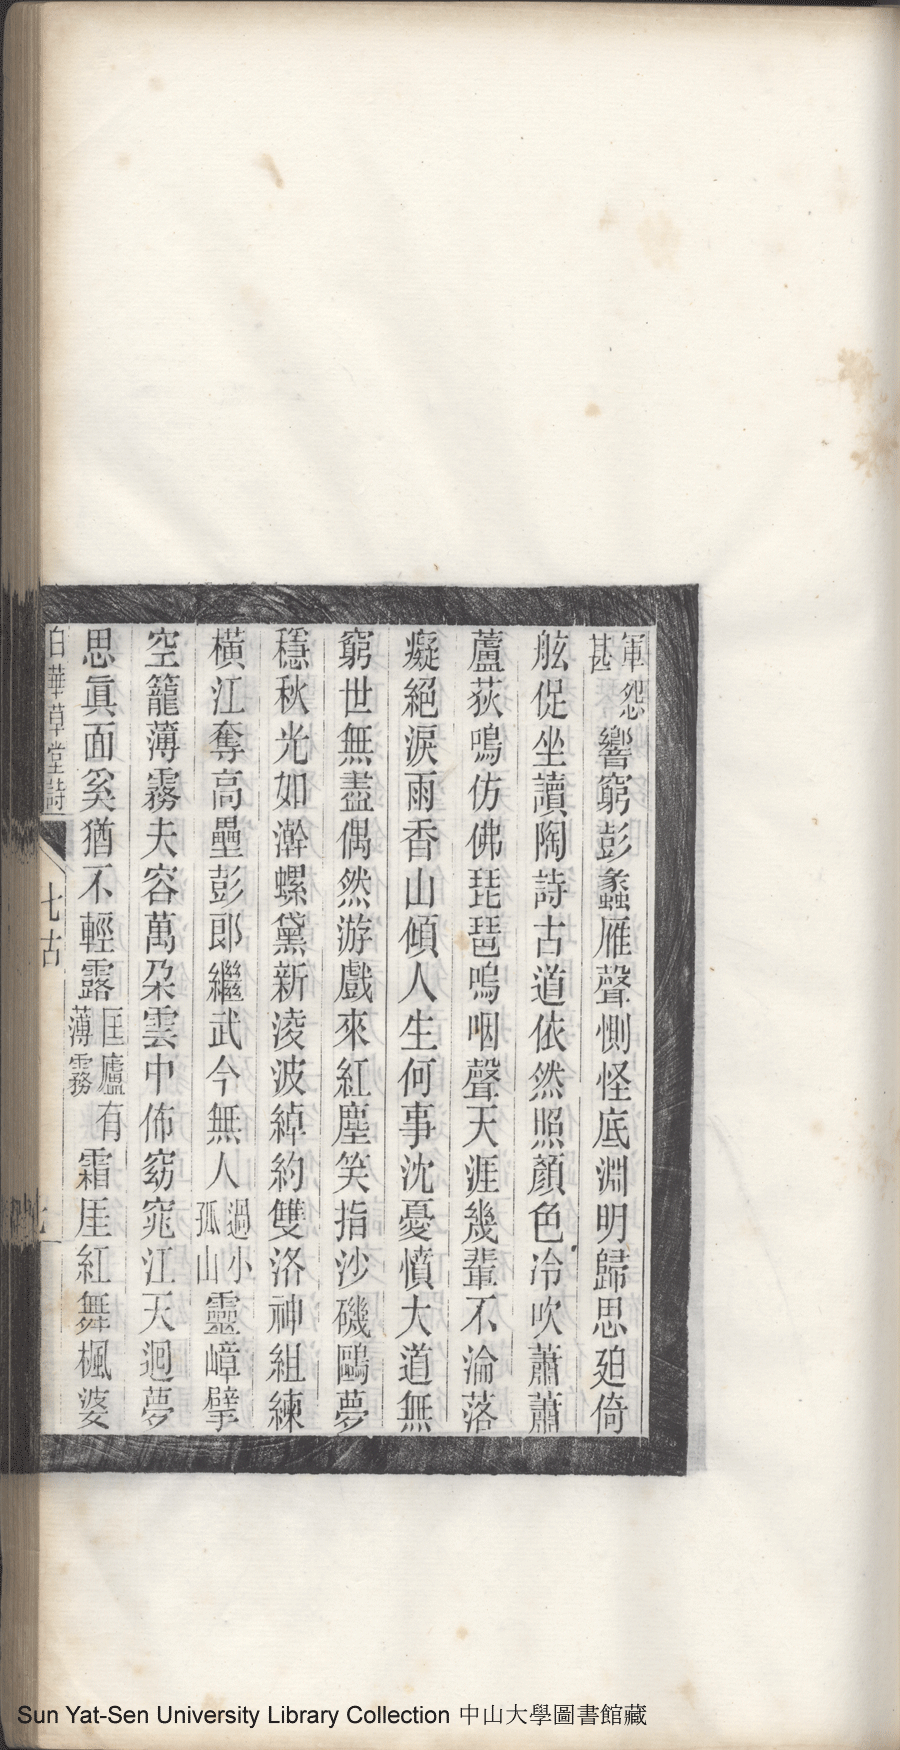 軍怨甚響窮彭蠡雁聲惻怪底淵明歸思廹倚
舷促坐讀陶詩古道依然照顏色冷吹蕭蕭
蘆荻鳴仿佛琵琶嗚咽聲天涯幾輩不淪落
癡絕淚雨香山傾人生何事沈憂憤大道無
窮世無盡偶然游戲來紅塵笑指沙磯鷗夢
穩秋光如澣螺黛新淩波綽約雙洛神組練
橫江奪高壘彭郎繼武今無人過小孤山靈嶂擘
空籠薄霧夫容萬朶雲中佈窈窕江天迴夢
思眞面奚猶不輕露匡廬有薄霧霜厓紅舞楓婆
白華草堂詩 七古
Sun Yat-Sen University Library Collection 中山大學圖書館藏